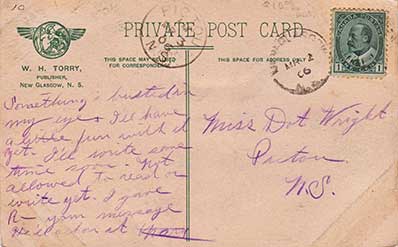 PRIVATE POST CARD
W. H. TORRY,
PUBLISHER,
NEW GLASGOW, N. S.
THIS SPACE MAY BE USED
FOR CORRESPONDENCE
THIS SPACE FOR ADDRESS ONLY
CANADA POSTAGE
1 1
06
Something busted in
my eye & I'll have
a little fun with it
yet. I'll write some
time soon. Not
allowed to read or
write yet. I gave
R- your message
Miss Dot Wright
Pictou
N.S.